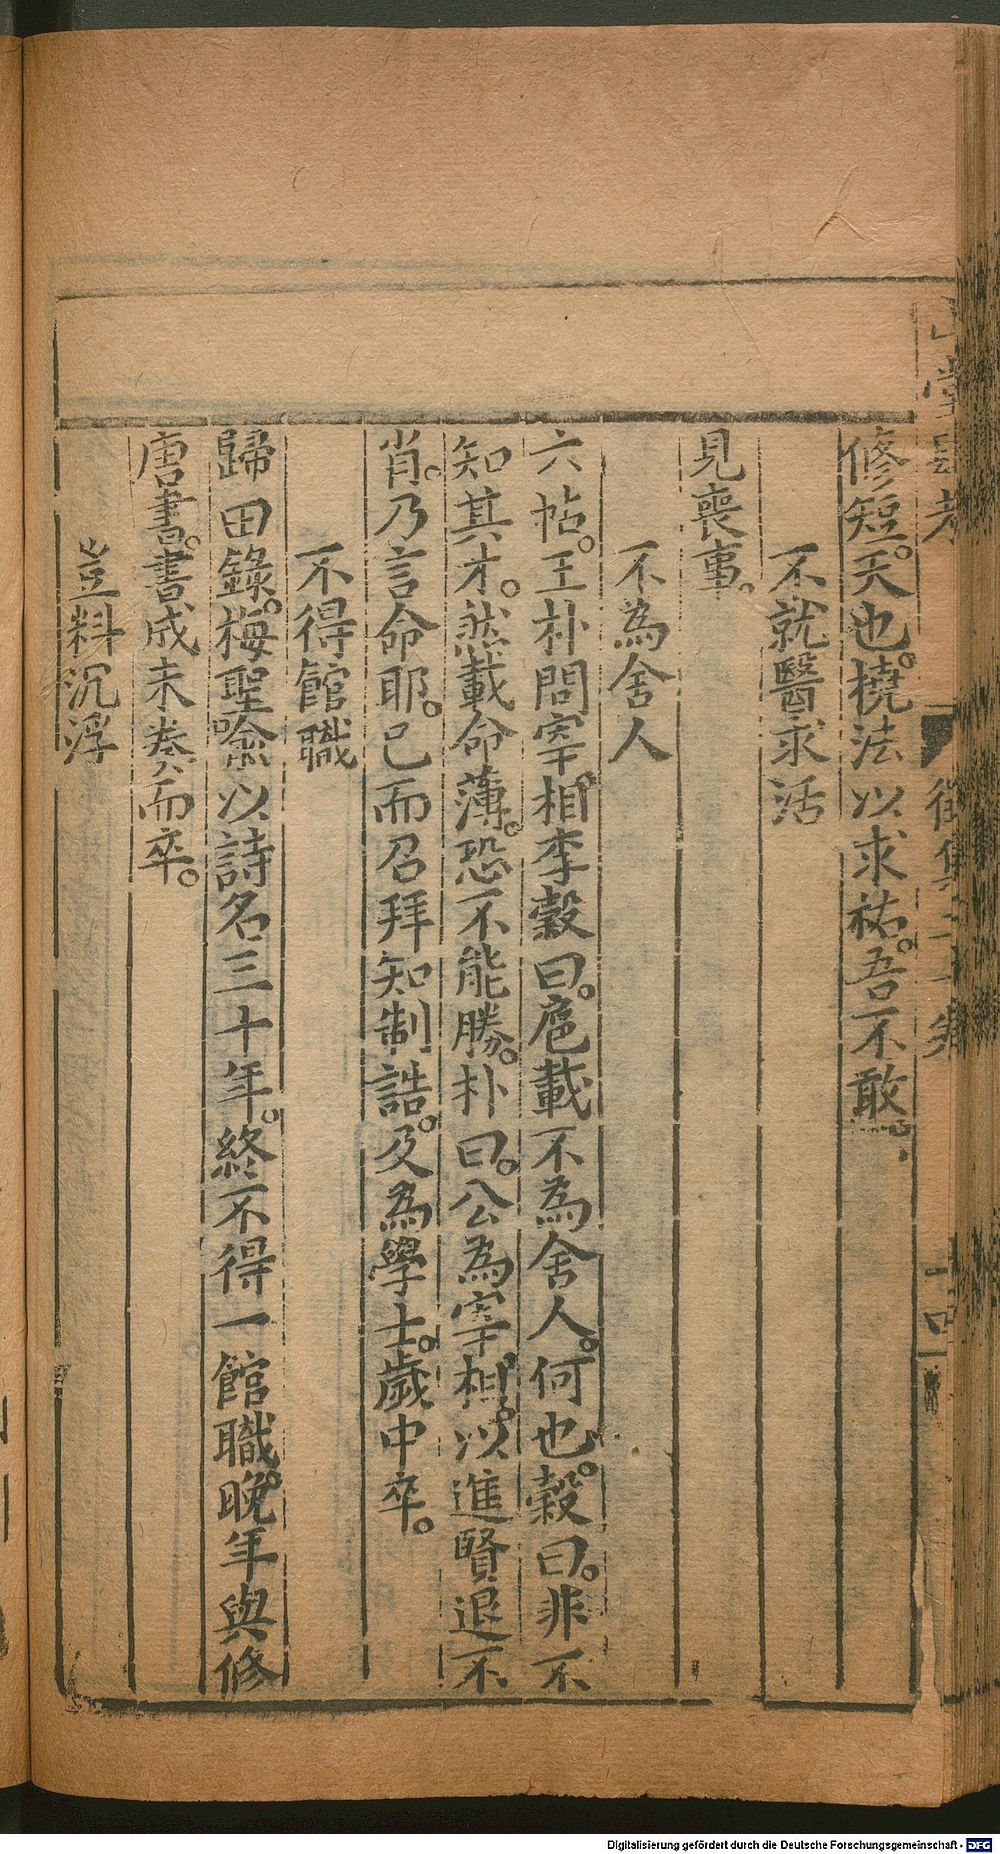 修短。天也。撓法以求祐。吾不敢。
不就醫求活
見喪事。
不為舍人
六帖。王朴問宰相李穀曰。扈載不為舍人。何也。穀曰。非不
知其才。然載命薄。恐不能勝。朴曰。公為宰相。以進賢退不
肖。乃言命耶。已而召拜知制誥。及為學士。歲中卒。
不得館職
歸田錄。梅聖喻以詩名三十年。終不得一館職。晚年與修
唐書。書成未奏而卒。
豈料沉浮
Digitalisierung gefördert durch die Deutsche Forschungsgemeinschaft - DFG